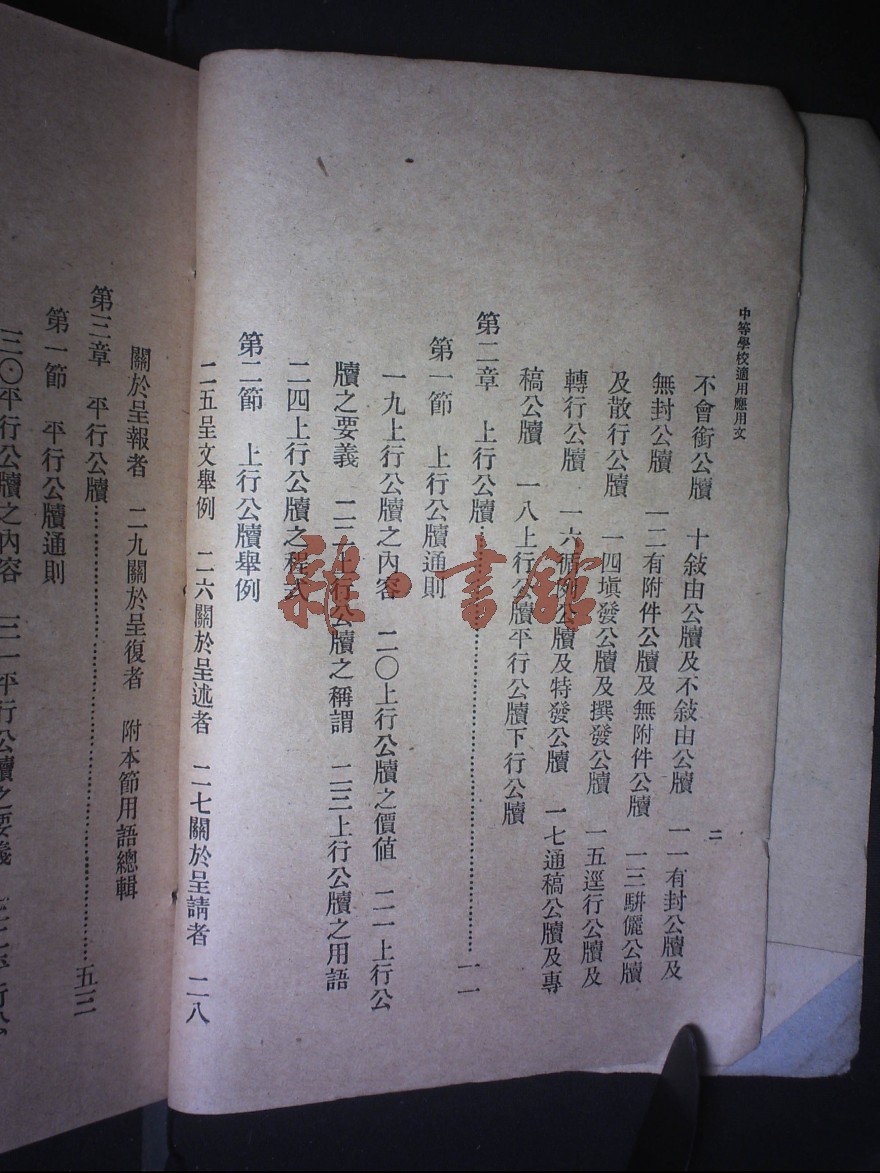 中等學校適用應用文
二
不會銜公牘　十敍由公牘及不敍由公牘　一一有封公牘及
無封公牘　一二有附件公牘及無附件公牘　一三駢儷公牘
及散行公牘　一四塡發公牘及撰發公牘　一五逕行公牘及
轉行公牘　一六循例公牘及特發公牘　一七通稿公牘及專
稿公牘　一八上行公牘平行公牘下行公牘
第二章　上行公牘……………………………一一
第一節　上行公牘通則
一九上行公牘之內容　二〇上行公牘之價値　二一上行公
牘之要義　二二上行公牘之稱謂　二三上行公牘之用語
二四上行公牘之程式
第二節　上行公牘舉例
二五呈文舉例　二六關於呈述者　二七關於呈請者　二八
關於呈報者　二九關於呈復者　附本節用語總輯
第三章　平行公牘……………………………五三
第一節　平行公牘通則
三〇平行公牘之內容　三一平行公牘之要義　三二平行公
雜·書館